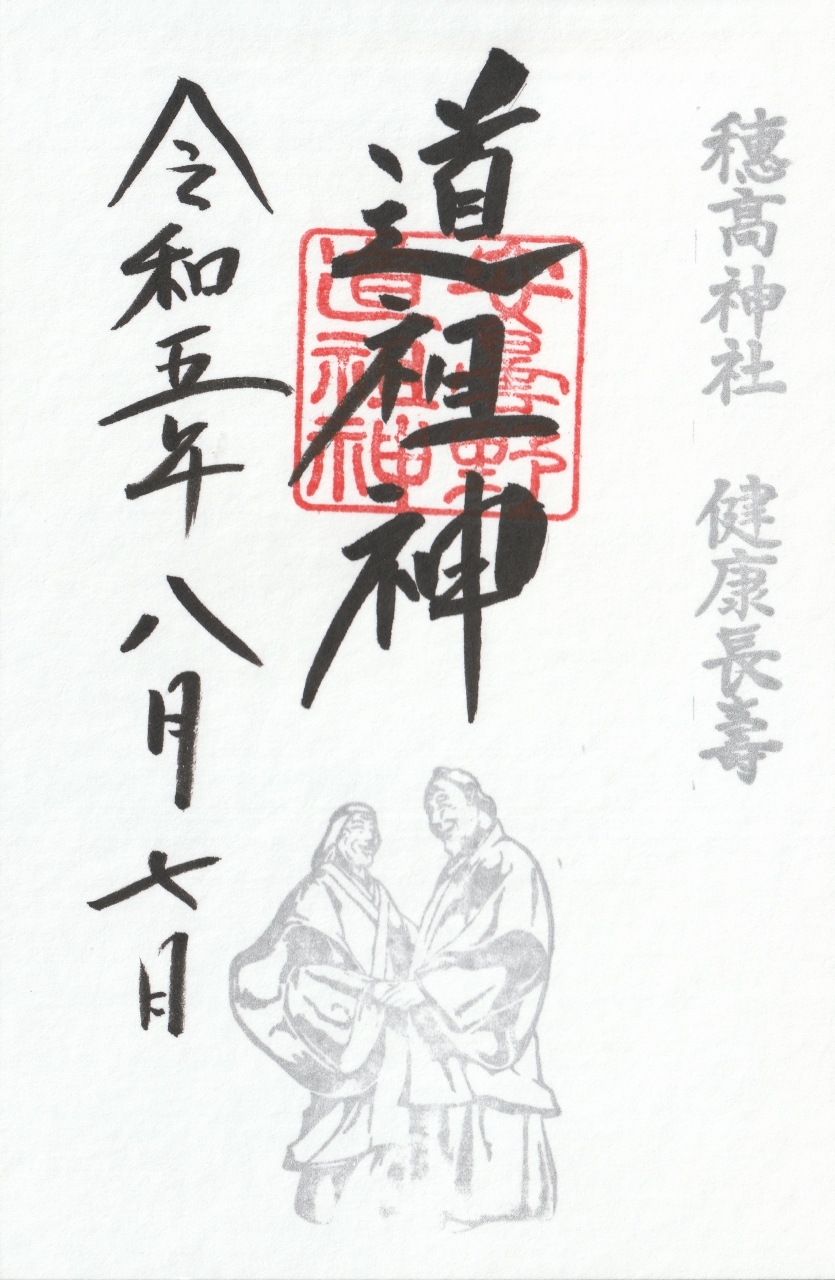 穂髙神社 健康長壽
道祖神
安曇野
道祖神
令和五年八月七日